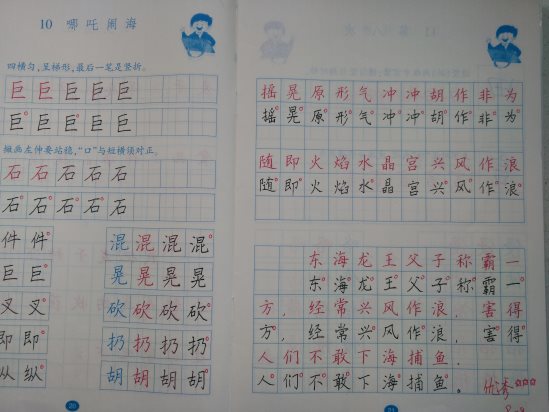 10 哪吒闹海
四横匀,呈梯形,最后一笔是竖折。
巨巨巨巨巨
巨巨巨巨巨
撇画左伸要站稳,“口”与短横须对正。
石石石石石
石石石石石
件件
巨巨
叉叉
即即
纵纵
混混混混
晃晃晃晃
砍砍砍砍
扔扔扔扔
胡胡胡胡
20
摇晃原形气冲冲胡作非为
摇晃原形气冲冲胡作非为
随即火焰水晶宫兴风作浪
随即火焰水晶宫兴风作浪
东海龙王父子称霸一
东海龙王父子称霸一
方,经常兴风作浪,害得
方,经常兴风作浪,害得
人们不敢下海捕鱼。
人们不敢下海捕鱼。
优秀
21